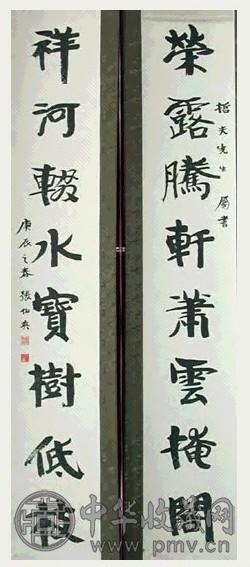 榮露騰軒蕭雲掩閣
哲天先生 屬書
祥河輟水寶樹低
庚辰之春 張伯英
中华收藏网
www.pmv.cn